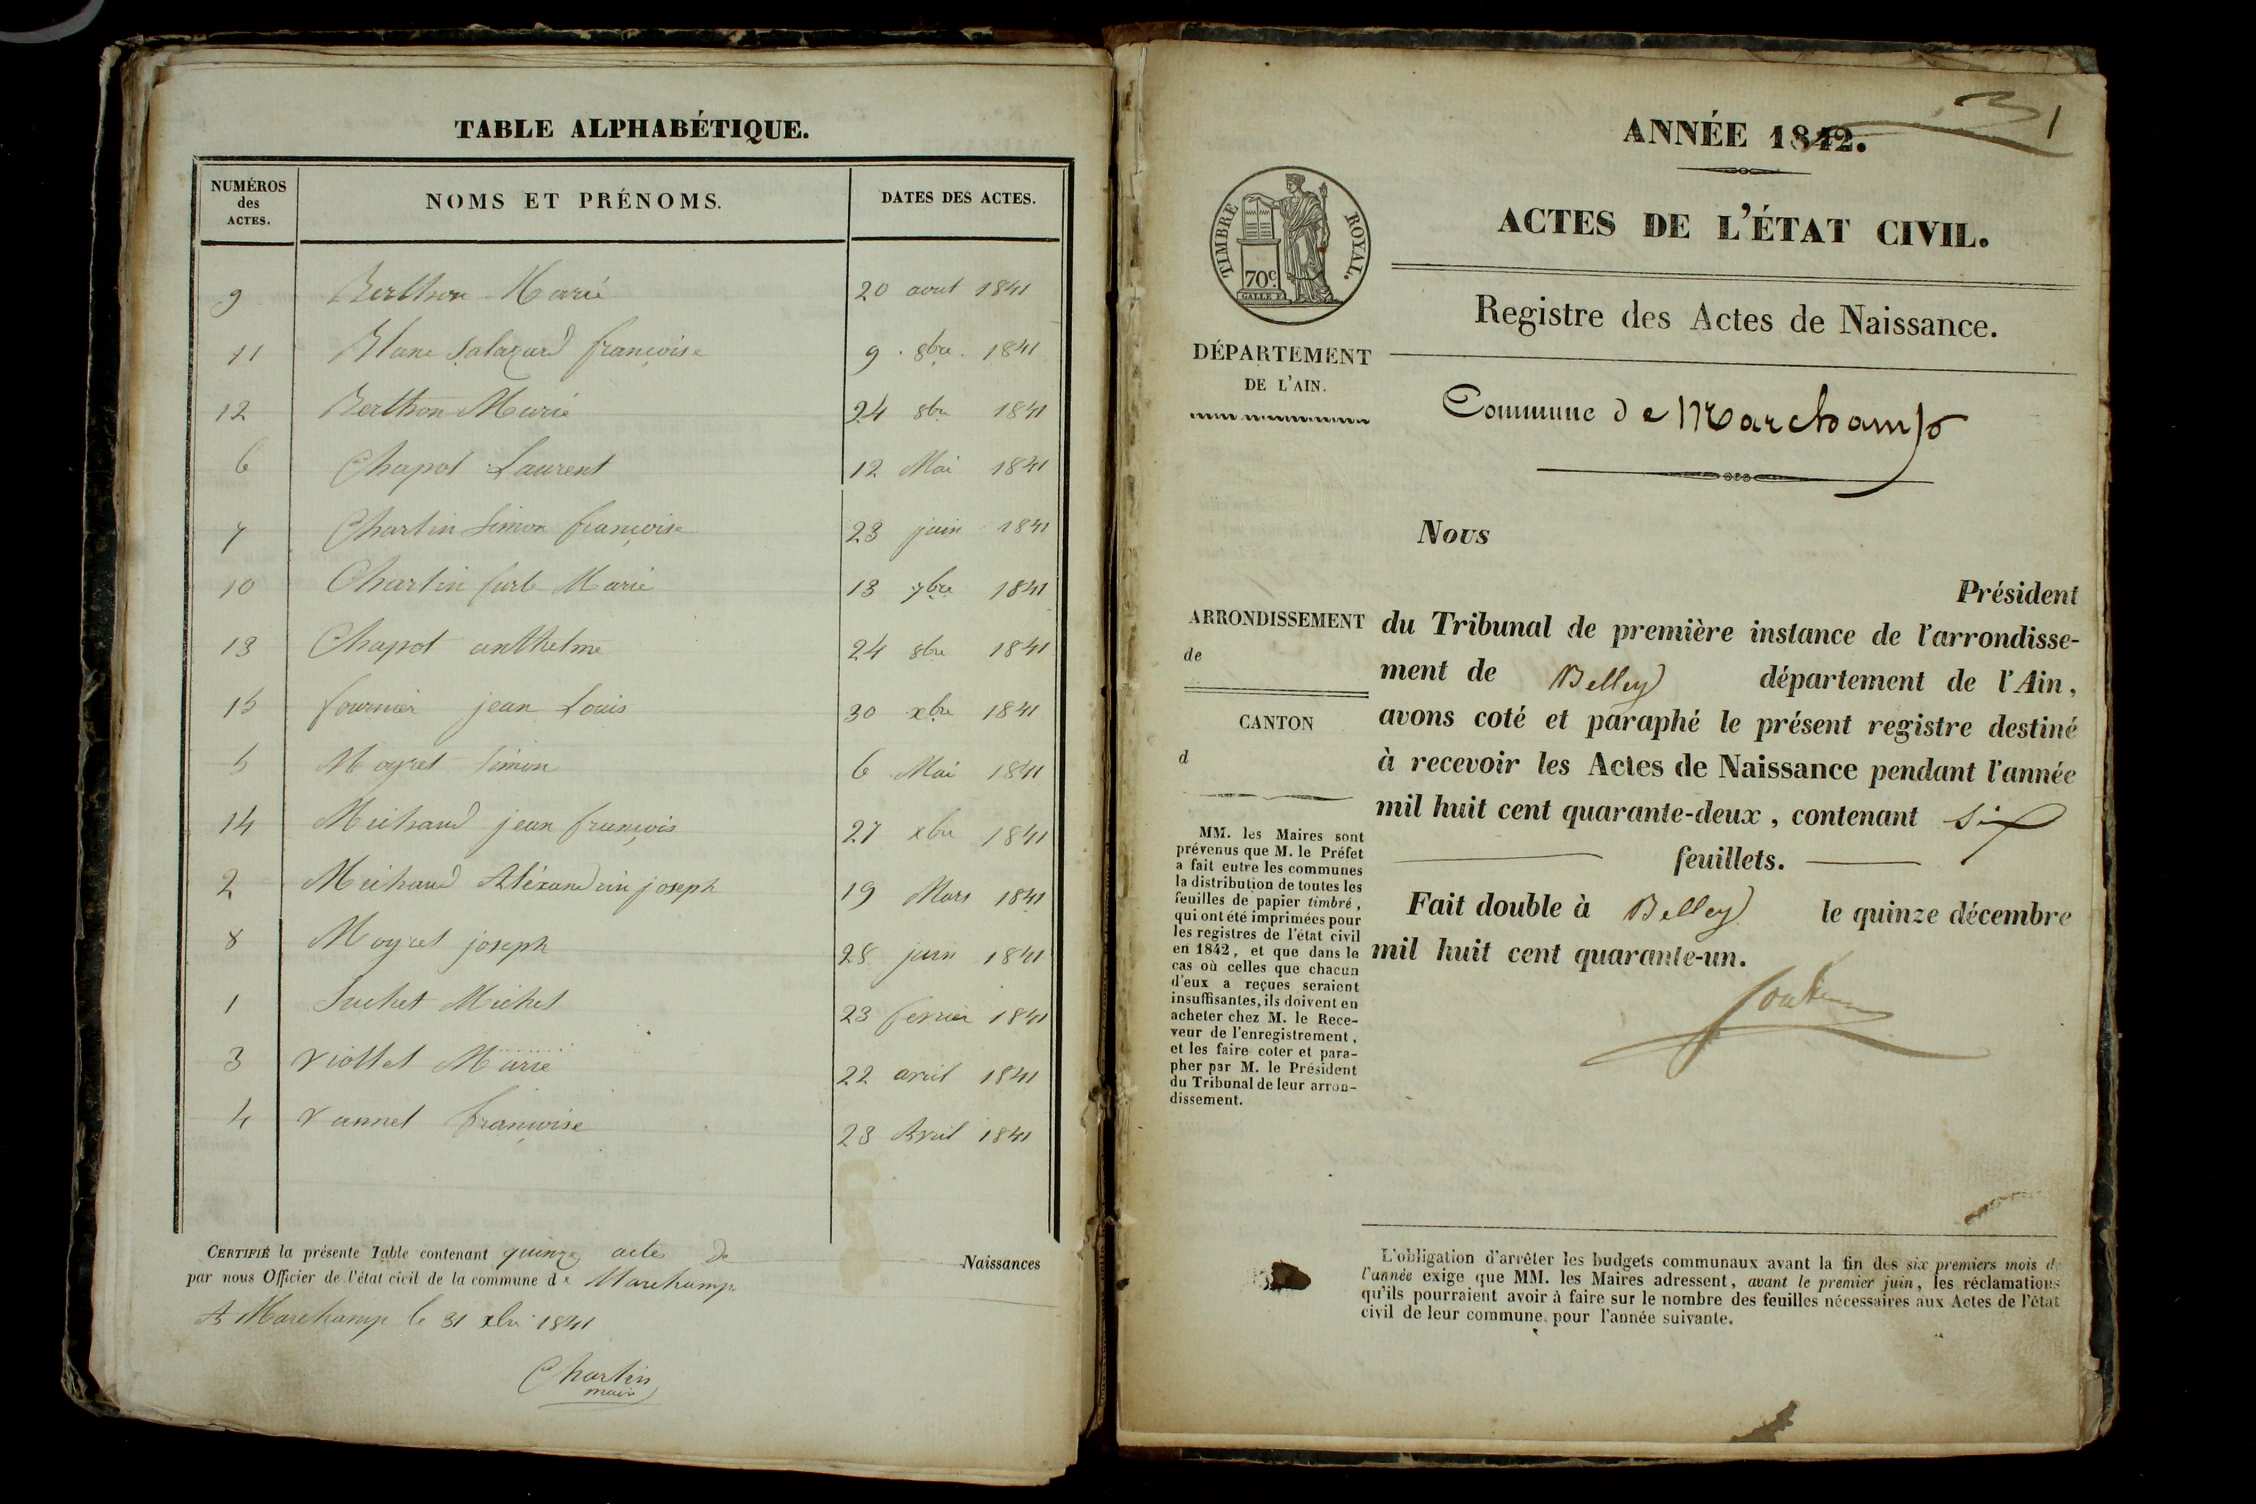 TABLE ALPHABÉTIQUE.
NUMÉROS
des
ACTES.
NOMS ET PRÉNOMS.
DATES DES ACTES.
9 Berthon Marie 20 aout 1841
11 Blanc Salazard françoise 9 8bre 1841
12 Berthon Marie 24 8bre 1841
6 Chapot Laurent 12 Mai 1841
7 Chartin Simon françoise 23 juin 1841
10 Chartin Marie 13 7bre 1841
13 Chapot anthelme 24 8bre 1841
15 fournier jean Louis 30 xbre 1841
5 Moyret Simon 6 Mai 1841
14 Michaud jean françois 27 xbre 1841
2 Michaud joseph 19 Mars 1841
8 Moyret joseph 28 juin 1841
1 Suchet Michel 23 fevrier 1841
3 Viollet Marie 22 avril 1841
4 Vannet françoise 23 Avril 1841
CERTIFIÉ la présente Table contenant quinze actes de Naissances
par nous Officier de l'état civil de la commune de Marchamp
A Marchamp le 31 xbre 1841
Chartin
maire
1
ANNÉE 1842.
ACTES DE L'ÉTAT CIVIL.
TIMBRE ROYAL.
70c.
Registre des Actes de Naissance.
DÉPARTEMENT
DE L'AIN.
Commune de Marchamp
Nous
Président
ARRONDISSEMENT
de
CANTON
d
du Tribunal de première instance de l'arrondisse-
ment de Belley département de l'Ain,
avons coté et paraphé le présent registre destiné
à recevoir les Actes de Naissance pendant l'année
mil huit cent quarante-deux, contenant six
feuillets.
Fait double à Belley le quinze décembre
mil huit cent quarante-un.
MM. les Maires sont
prévenus que M. le Préfet
a fait entre les communes
la distribution de toutes les
feuilles de papier timbré,
qui ont été imprimées pour
les registres de l'état civil
en 1842, et que dans le
cas où celles que chacun
d'eux a reçues seraient
insuffisantes, ils doivent en
acheter chez M. le Rece-
veur de l'enregistrement,
et les faire coter et para-
pher par M. le Président
du Tribunal de leur arron-
dissement.
L'obligation d'arrêter les budgets communaux avant la fin des six premiers mois de
l'année exige que MM. les Maires adressent, avant le premier juin, les réclamations
qu'ils pourraient avoir à faire sur le nombre des feuilles nécessaires aux Actes de l'état
civil de leur commune pour l'année suivante.